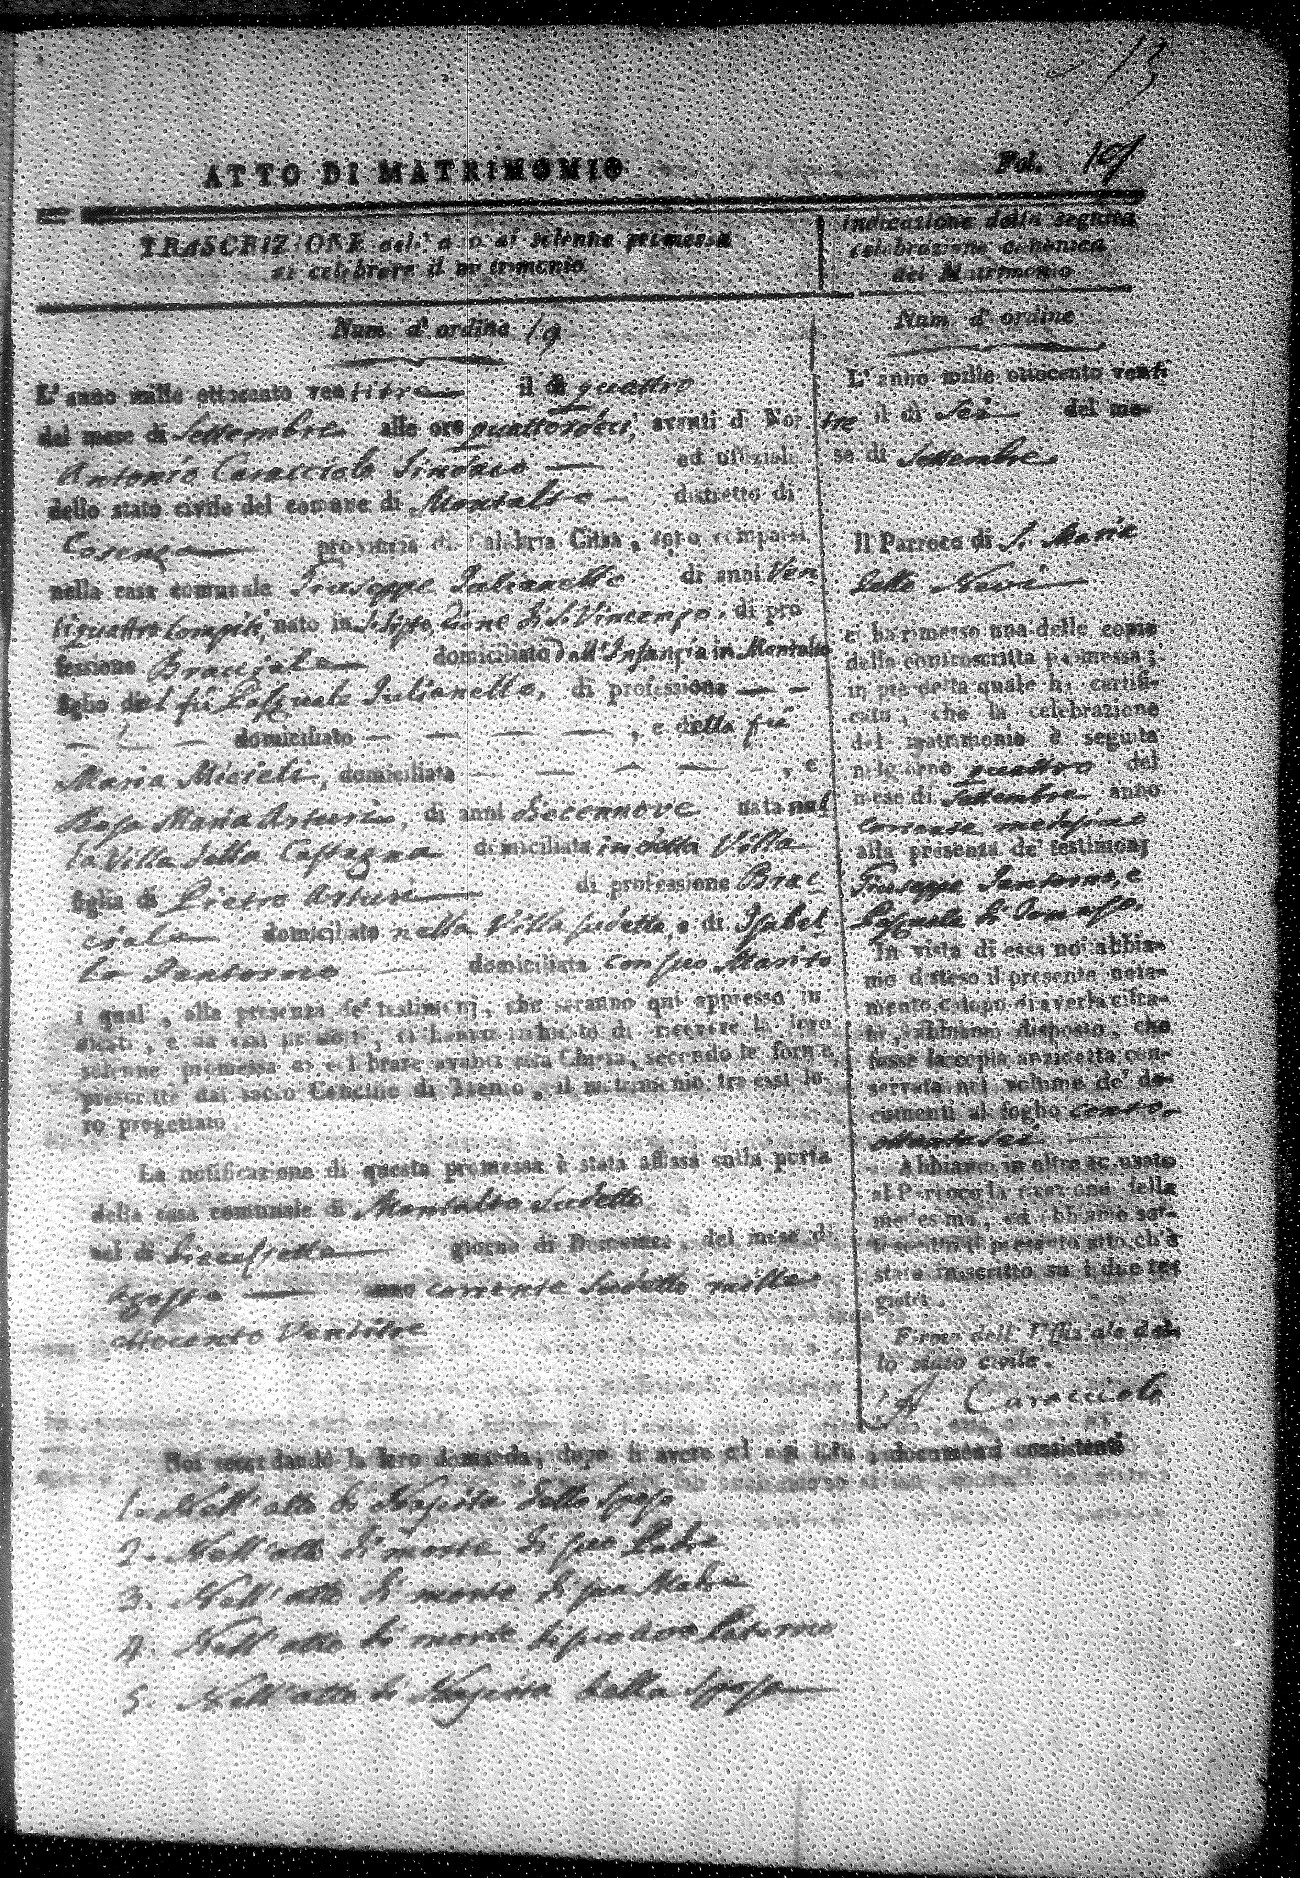 13
ATTO DI MATRIMONIO
Fol. 101
TRASCRIZIONE dell' atto di solenne promessa
di celebrare il matrimonio
Num. d' ordine 19
L' anno mille ottocento ventitre il dì quattro
del mese di Settembre alle ore quattordeci, avanti di Noi
Antonio Caracciolo Sindaco ed uffiziale
dello stato civile del comune di Montalto distretto di
Cosenza provincia di Calabria Citra, sono comparsi
nella casa comunale Giuseppe Julianello di anni Ven
tiquattro compiti, nato in Rione di S. Vincenzo, di pro
fessione Bracciale domiciliato dall' Infanzia in Montalto
figlio del fù Pasquale Julianello, di professione — —
— — — domiciliato — — — — , e della fù
Maria Miceli, domiciliata — — — — — , e
Rosa Maria Arturi, di anni diecennove nata nel
la Villa della Castagna domiciliata in detta Villa
figlia di Pietro Arturi di professione Brac
ciale domiciliato nella Villa sudetta, e di Isabel
la Santormo domiciliata con suo Marito
i quali, alla presenza de' testimonj, che saranno quì appresso in
dicati, e da essi prodotti, ci hanno richiesto di ricevere la loro
solenne promessa di celebrare avanti alla Chiesa, secondo le forme
prescritte dal sacro Concilio di Trento, il matrimonio tra essi lo
ro progettato
La notificazione di questa promessa è stata affissa sulla porta
della casa comunale di Montalto Sudetto
nel dì diecasette giorno di Domenica, del mese di
Agosto anno corrente sudetto mille
ottocento Ventitre
Indicazione della seguita
celebrazione canonica
del Matrimonio
Num. d' ordine
L' anno mille ottocento venti
tre il dì Sei del me-
se di Settembre
Il Parroco di S. Maria
della Neve
ci ha rimesso una delle copie
della controscritta promessa;
in piè della quale ha certifi-
cato, che la celebrazione
del matrimonio è seguita
nel giorno quattro del
mese di Settembre anno
corrente medesimo
alla presenza de' testimonj
Giuseppe Santormo, e
Pasquale di Tomasso.
In vista di essa noi abbia-
mo disteso il presente nota-
mento, e dopo di averla cifra-
ta, abbiamo disposto, che
fosse la copia anzidetta con-
servata nel volume de' do-
cumenti al foglio cento
ottantasei
Abbiamo in oltre accusato
al Parroco la ricezione della
medesima, ed abbiamo sot-
toscritto il presente atto, ch'è
stato inscritto su i due re-
gistri.
Firma dell' Uffiziale del-
lo stato civile.
A Caracciolo
Noi secondando la loro domanda, dopo di avere ad essi letti i documenti consistenti
1. Nell' atto di Nascita dello Sposo
2. Nell' atto di morte di suo Padre
3. Nell' atto di morte di sua Madre
4. Nell' atto di morte di suo avo Paterno
5. Nell' atto di Nascita della Sposa